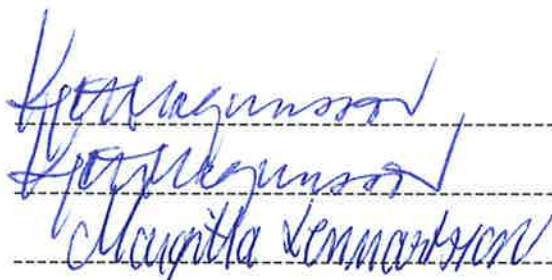 Kjell Magnusson
Kjell Magnusson
Margitta Lennartsson